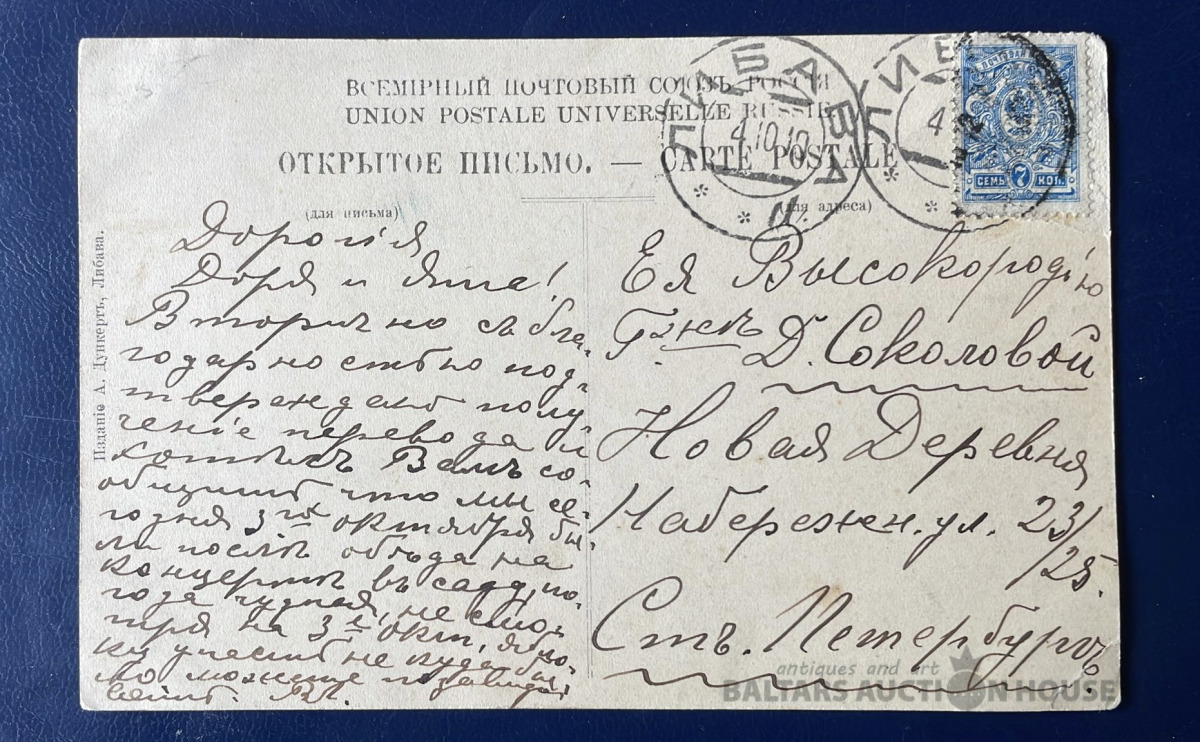 ВСЕМІРНЫЙ ПОЧТОВЫЙ СОЮЗЪ. РОССІЯ
UNION POSTALE UNIVERSELLE RUSSIE.
ОТКРЫТОЕ ПИСЬМО. — CARTE POSTALE
(для письма)
(для адреса)
ЛИБАВА
4.10.12
ЛИБ
4
СЕМЬ 7 КОП.
Изданіе А. Дункертъ, Либава.
Дорогія
Доря и Яша!
Вторично съ бла-
годарностью под-
тверждаю полу-
ченіе перевода и
Вамъ со-
общить что мы се-
годня 3го октября бы-
ли послѣ обѣда на
концертѣ въ саду, по-
года чудная, не смо-
тря на 3е окт,
не
Ея Высокородію
Гжѣ Д. Соколовой
Новая Деревня
Набережн. ул. 23/
/25.
Стъ. Петербургъ
antiques and art
BALTARS AUCTION HOUSE